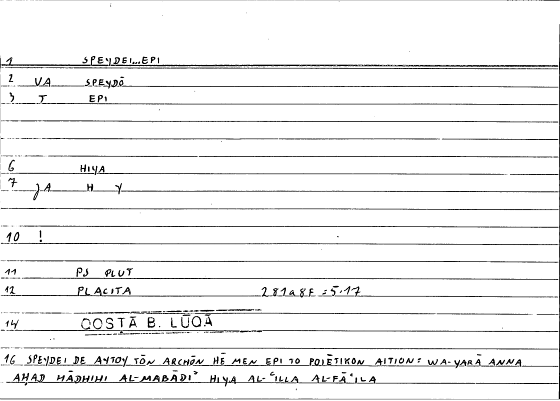 1 SPEYDEI...EPI
2 VA SPEYDŌ
3 T EPI
6 HIYA
7 JA H Y
10 !
11 PS PLUT
12 PLACITA 281a8F =5.17
14 QOSṬĀ B. LŪQĀ
16 SPEYDEI DE AYTOY TŌN ARCHŌN HĒ MEN EPI TO POIĒTIKON AITION: WA-YARĀ ANNA
AḤAD HĀDHIHI AL-MABĀDIʾ HIYA AL-ʿILLA AL-FĀʿILA